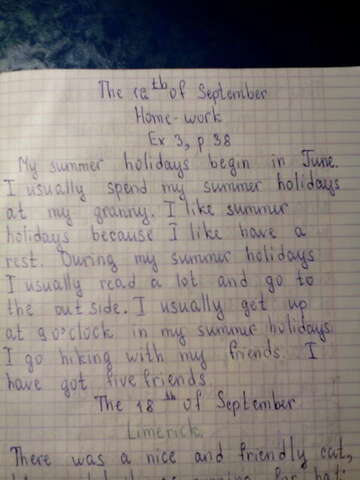 The 12th of September
Home-work
Ex 3, p 38
My summer holidays begin in June.
I usually spend my summer holidays
at my granny. I like summer
holidays because I like have a
rest. During my summer holidays
I usually read a lot and go to
the outside. I usually get up
at 9 o'clock in my summer holidays
I go hiking with my friends. I
have got five friends
The 18th of September
Limerick.
There was a nice and friendly cat,